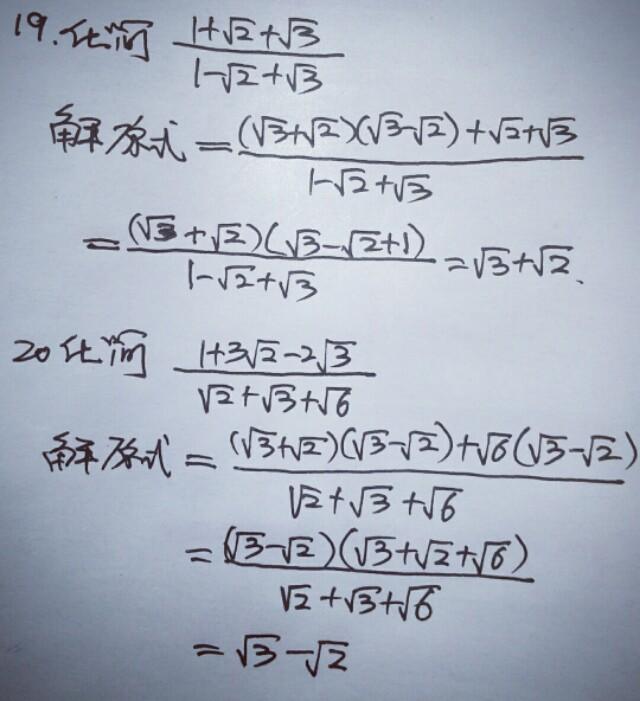 19.化简 (1+√2+√3)/(1-√2+√3)
解原式=((√3+√2)(√3-√2)+√2+√3)/(1-√2+√3)
=((√3+√2)(√3-√2+1))/(1-√2+√3)=√3+√2.
20化简 (1+3√2-2√3)/(√2+√3+√6)
解原式=((√3+√2)(√3-√2)+√6(√3-√2))/(√2+√3+√6)
=((√3-√2)(√3+√2+√6))/(√2+√3+√6)
=√3-√2